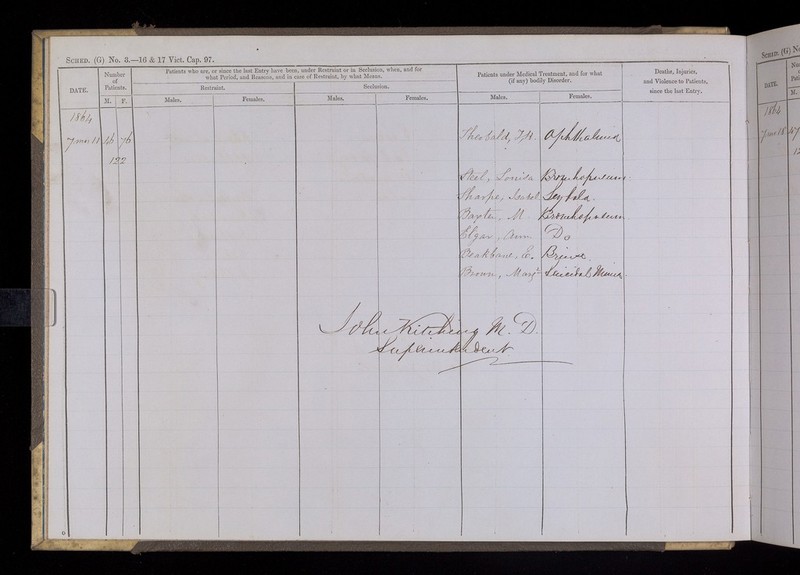 SCHED. (G) No. 3.—16 & 17 Vict. Cap. 97.
DATE.
Number of Patients.
M. F.
Patients who are, or since the last Entry have been, under Restraint or in Seclusion, when, and for what Period, and Reasons, and in case of Restraint, by what Means.
Restraint. Seclusion.
Males. Females. Males. Females.
Patients under Medical Treatment, and for what (if any) bodily Disorder.
Males. Females.
Deaths, Injuries, and Violence to Patients, since the last Entry.
1864
7 mo 11 46 76 Theobald, Ophthalmia
122
Steel, Louisa
Sharpe, Isabel
Baxter, M.
Elgar, Ann Do
Beakbane, E.
Brown, Mary Suicidal Mania
John Kitching M.D.
Superintendent
SCHED. (G) No
DATE.
M.
1864
7 mo 18 47